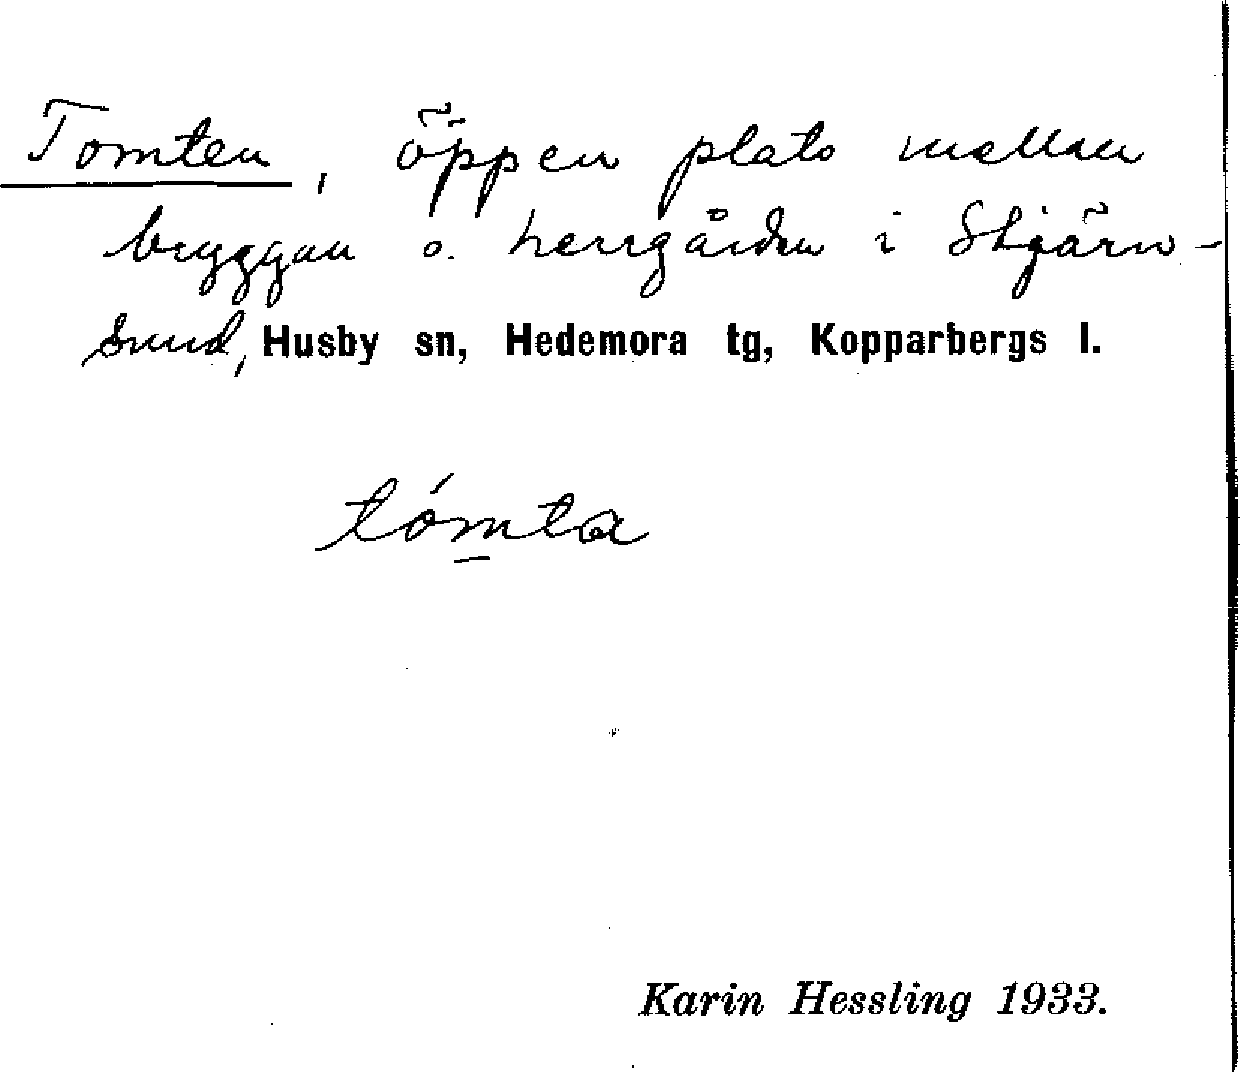 Tomten, öppen plats mellan
bryggan o. herrgården i Stjärn-
sund, Husby sn, Hedemora tg, Kopparbergs l.
tómta
Karin Hessling 1933.